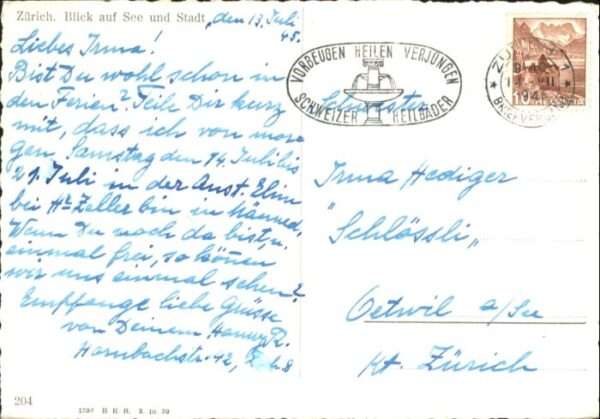 Zürich. Blick auf See und Stadt
den 13. Juli
45.
Liebes Irma!
Bist Du wohl schon in
den Ferien? Teile Dir kurz
mit, dass ich von mor
gen, Samstag den 14. Juli bis
21. Juli in der Anst. Elim
bei Hr. Zeller bin in Männed.
Wenn Du noch da bist, u.
einmal frei, so können
wir uns einmal sehen?
Empfange liebe Grüsse
von Deinem Hanny R.
Hornbachstr. 42, Zch. 8
204
VORBEUGEN HEILEN VERJÜNGEN
SCHWEIZER HEILBÄDER
ZÜRICH 1
Schwester
Irma Hediger
"Schlössli"
Oetwil a/See
Kt. Zürich